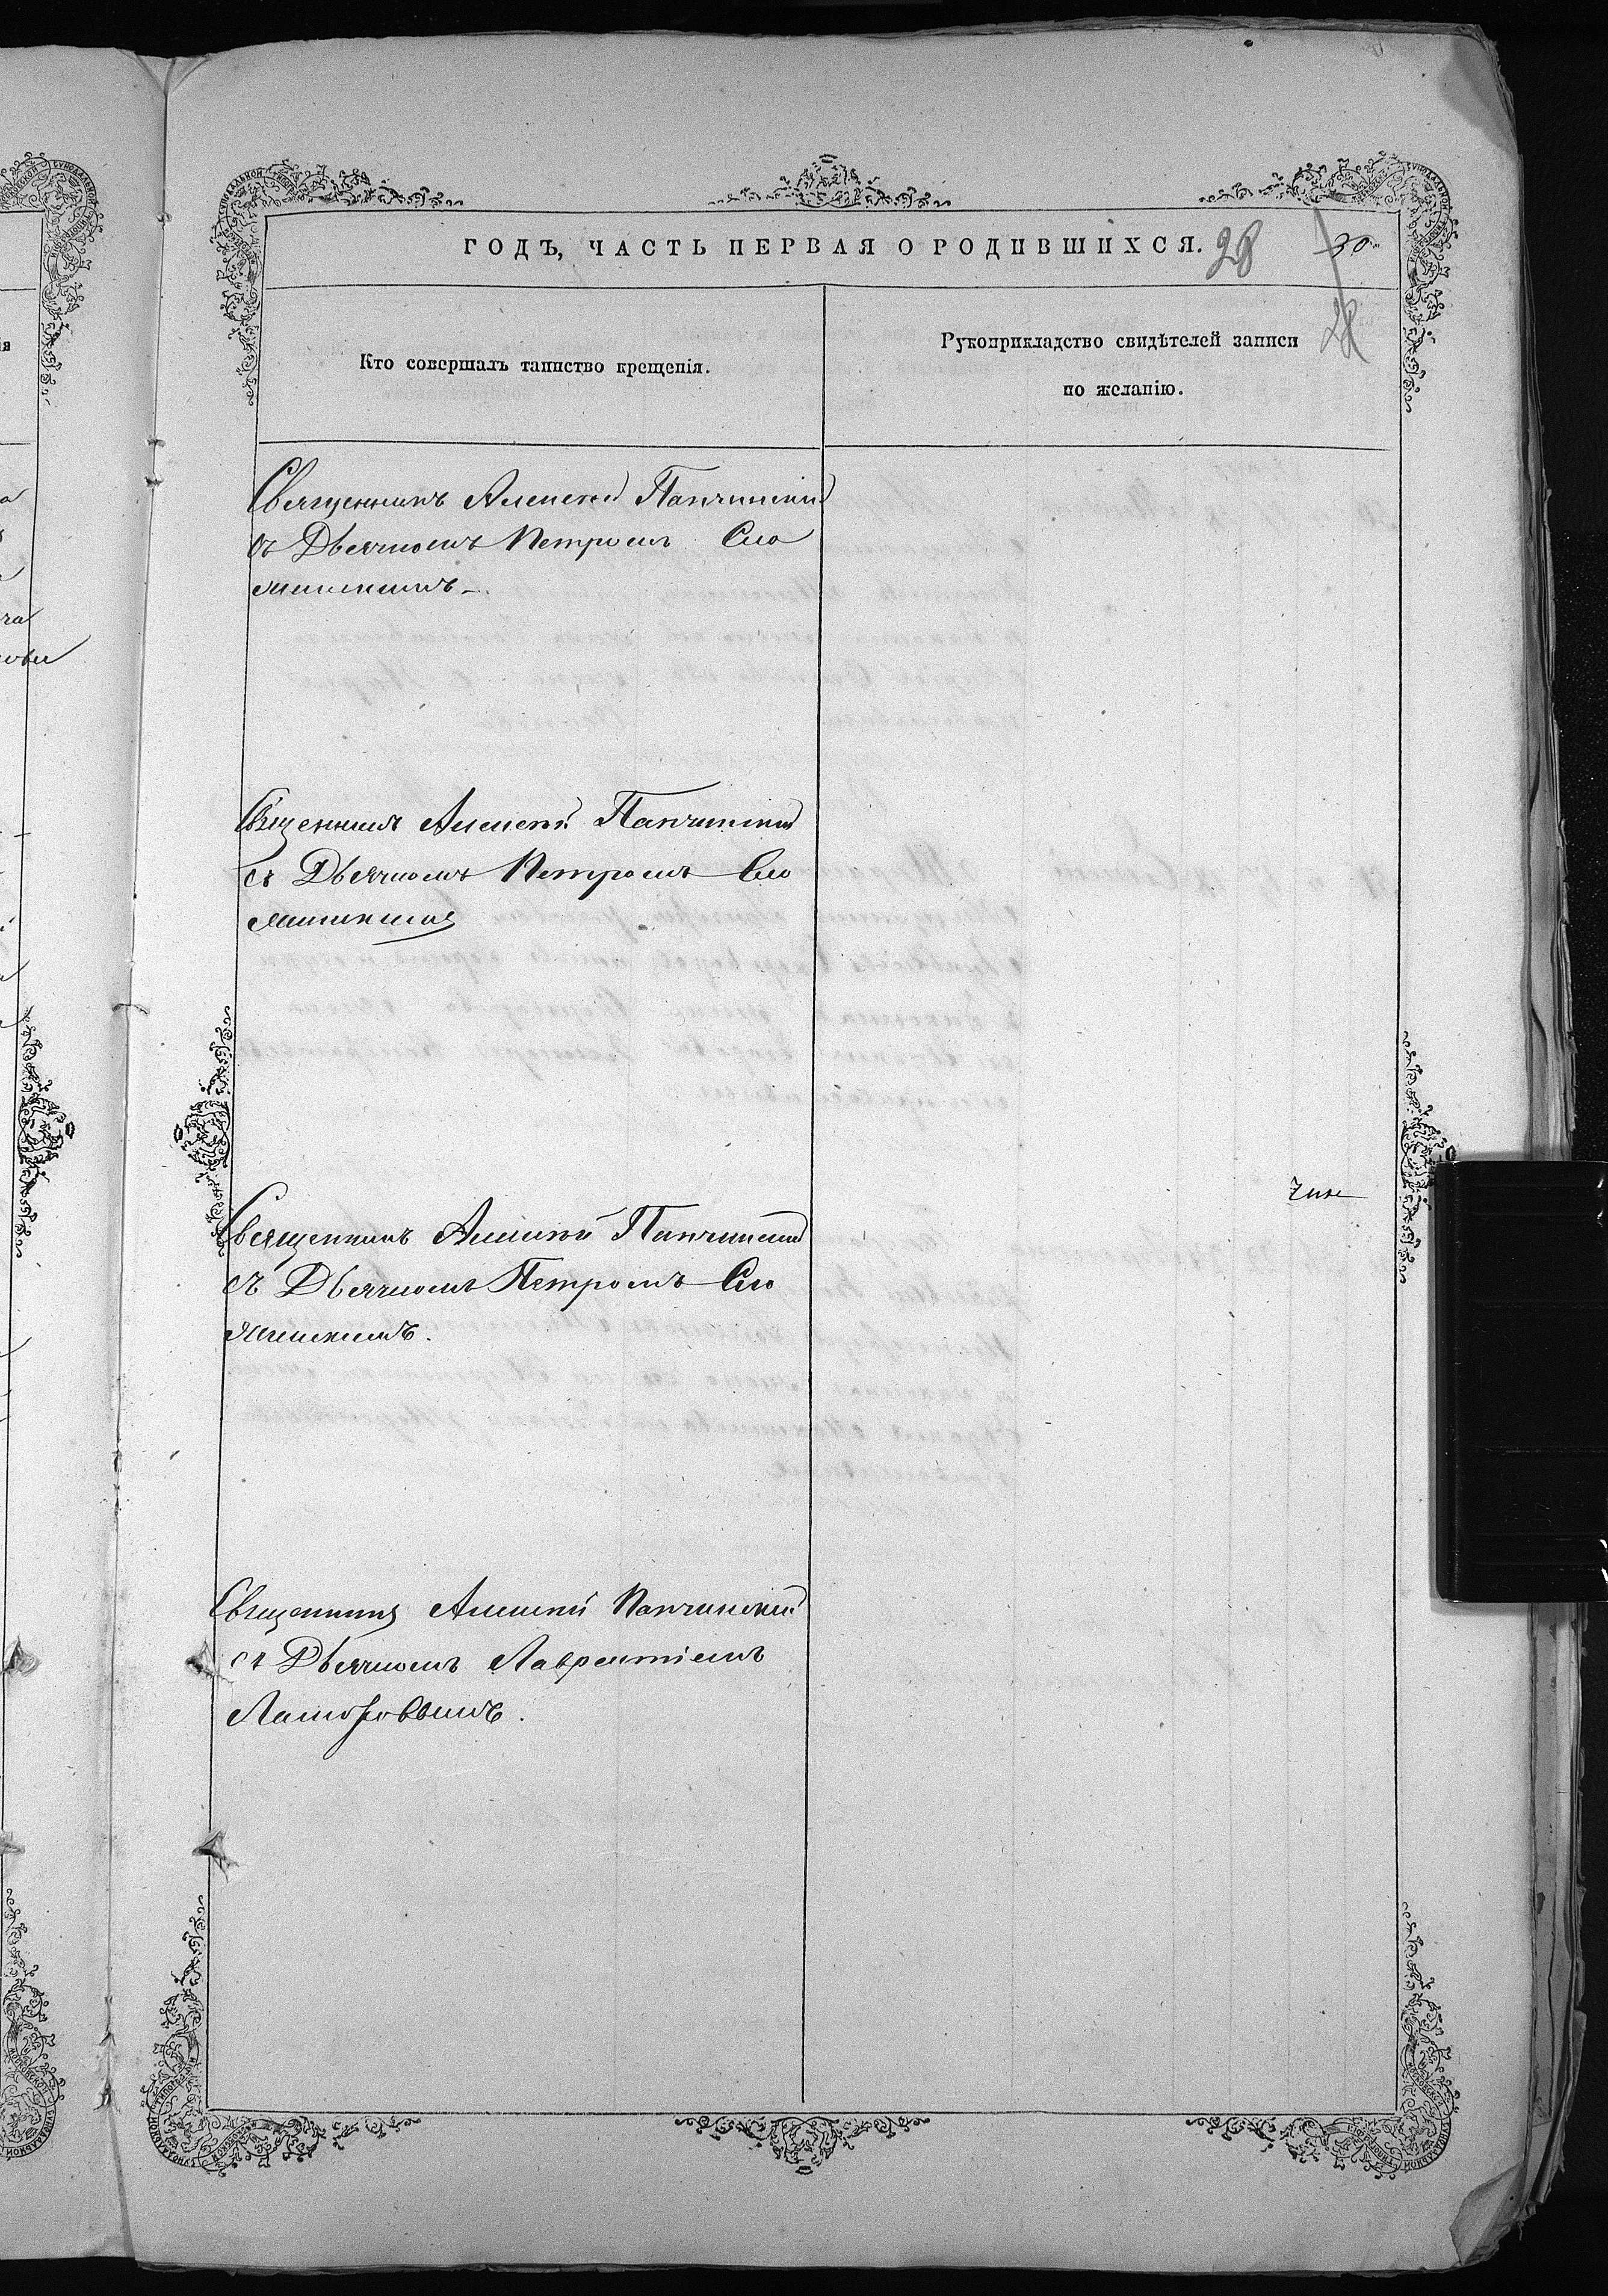 ГОДЪ, ЧАСТЬ ПЕРВАЯ О РОДИВШИХСЯ. 28 30
28
Кто совершалъ таинство крещенія.
Рукоприкладство свидѣтелей записи
по желанію.
Священникъ Алексей Панчинский
съ Дьячкомъ Петромъ Сло
минскимъ.
Священникъ Алексей Панчинский
съ Дьячкомъ Петромъ Сло
минскимъ
Священникъ Алексей Панчинский
съ Дьячкомъ Петромъ Сло
минскимъ.
Священникъ Алексей Панчинский
съ Дьячкомъ Лаврентіемъ